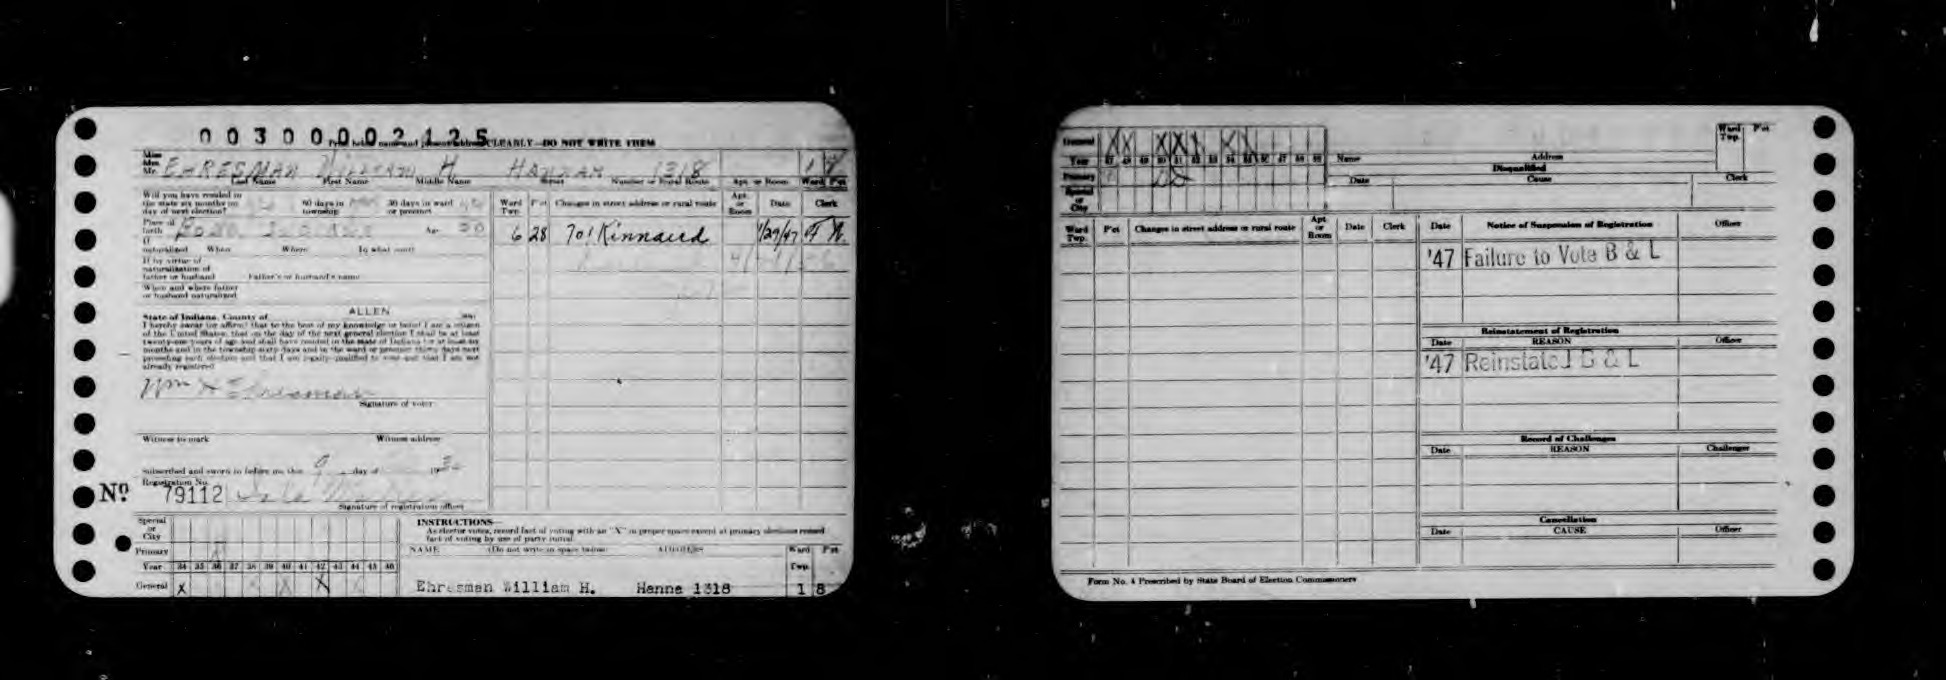 00300002125
Print below name and present address CLEARLY—DO NOT WRITE THEM
Miss
Mrs.
Mr. EHRESMAN WILLIAM H HANNAH 1318 1 8
Last Name First Name Middle Name Street Number or Rural Route Apt. or Room Ward Pct
Will you have resided in
the state six months on 60 days in 30 days in ward
day of next election? township or precinct
Ward Twp. Pct Changes in street address or rural route Apt. or Room Date Clerk
Place of
birth Age
6 28 701 Kinnaird 1/29/47
If
naturalized When Where In what court
If by virtue of
naturalization of
father or husband Father's or husband's name
When and where father
or husband naturalized
State of Indiana, County of ALLEN
I hereby swear (or affirm) that to the best of my knowledge or belief I am a citizen
of the United States, that on the day of the next general election I shall be at least
twenty-one years of age and shall have resided in the state of Indiana for at least six
months and in the township sixty days and in the ward or precinct thirty days next
preceding such election and that I am legally qualified to vote and that I am not
already registered
Wm H Ehresman
Signature of voter
Witness to mark Witness address
Subscribed and sworn to before me this 9 day of 19
Registration No.
No. 79112
Signature of registration officer
Special
or
City
Primary
Year 34 35 36 37 38 39 40 41 42 43 44 45 46
General X X X
INSTRUCTIONS—
As elector votes, record fact of voting with an "X" in proper space except at primary elections record
fact of voting by use of party initial
NAME (Do not write in space below) ADDRESS Ward Twp. Pct
Ehresman William H. Hanna 1318 1 8
General X X X X X X X
Year 47 48 49 50 51 52 53 54 55 56 57 58 59
Primary
Special
or
City
Name Address Ward Twp. Pct
Disqualified
Date Cause Clerk
Ward Twp. Pct Changes in street address or rural route Apt. or Room Date Clerk
Date Notice of Suspension of Registration Officer
'47 Failure to Vote B & L
Reinstatement of Registration
Date REASON Officer
'47 Reinstated B & L
Record of Challenges
Date REASON Challenger
Cancellation
Date CAUSE Officer
Form No. 4 Prescribed by State Board of Election Commissioners